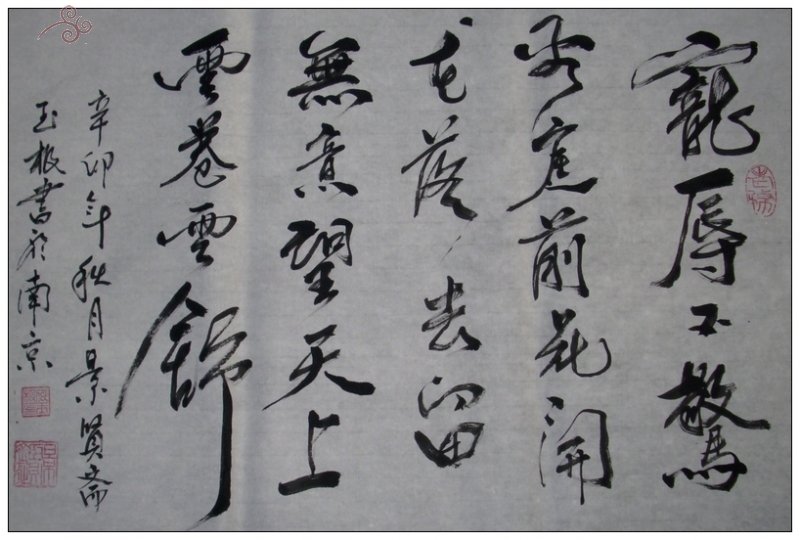 寵辱不驚
看窗前花開
花落去留
無意望天上
雲卷雲舒
辛卯年秋月景賢斋
玉根書於南京